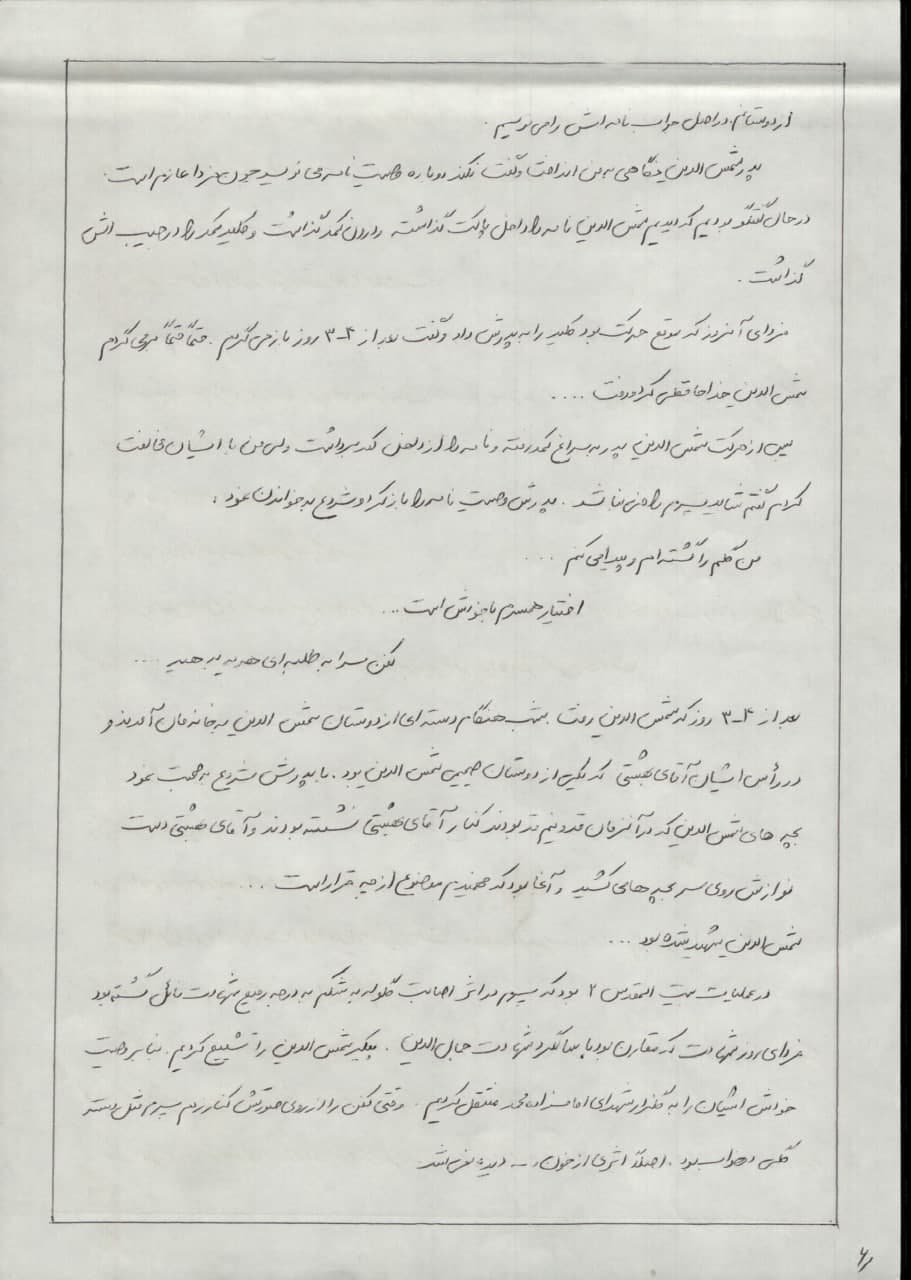 از دوستانم در اصل جواب نامه اش را می نویسم.
پدر شمس الدین نگاهی به من انداخت و گفت نکند دوباره وصیت نامه می نویسد چون فردا عازم است.
در حال گفتگو بودیم که دیدیم شمس الدین نامه را داخل پاکت گذاشته و درون کمد گذاشت و کلید کمد را در جیب اش
گذاشت.
فردای آنروز که موقع حرکت بود کلید را به پدرش داد و گفت بعد از ۴-۳ روز باز می گردم. حتماً حتماً بر می گردم
شمس الدین خداحافظی کرد و رفت ....
پس از حرکت شمس الدین پدر به سراغ کمد رفته و نامه را از داخل کمد برداشت ولی من با ایشان مخالفت
کردم گفتم شاید پسرم راضی نباشد. پدرش وصیت نامه را باز کرد و شروع به خواندن نمود:
من گلم را گشته ام و پیدا می کنم ...
اختیار همسرم با خودش است...
کفن مرا به طلبه ای هدیه بدهید ....
بعد از ۴-۳ روز که شمس الدین رفت شب هنگام دسته ای از دوستان شمس الدین به خانه مان آمدند و
در رأس ایشان آقای بهشتی که یکی از دوستان صمیمی شمس الدین بود. با پدرش شروع به صحبت نمود
بچه های شمس الدین که در آنزمان قد و نیم قد بودند کنار آقای بهشتی نشسته بودند و آقای بهشتی دست
نوازش روی سر بچه های کشید و آنجا بود که فهمیدم موضوع از چه قرار است ...
شمس الدین شهید شده بود ...
در عملیات بیت المقدس ۲ بود که پسرم در اثر اصابت گلوله به شکم به درجه رفیع شهادت نائل گشته بود
فردای روز شهادت که مقارن بود با سالگرد شهادت جمال الدین. پیکر شمس الدین را تشییع کردیم. بنا بر وصیت
خودش ایشان را به گلزار شهدای امامزاده محمد منتقل کردیم. وقتی کفن را از روی صورتش کنار زدم پسرم مثل دسته
گلی در خواب بود. اصلاً اثری از خون و ... دیده نمی شد